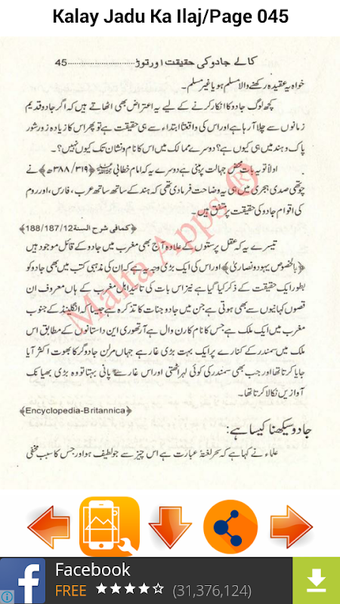 Kalay Jadu Ka Ilaj/Page 045
کالے جادو کی حقیقت اور توڑ 45
خواہ یہ عقیدہ رکھنے والا مسلم ہو یا غیر مسلم۔
کچھ لوگ جادو کا انکار کرنے کے لیے یہ اعتراض بھی اٹھاتے ہیں کہ اگر جادو قدیم
زمانوں سے چلا آ رہا ہے اور اس کی واقعتا ابتداء سے ہی حقیقت ہے تو پھر اس کا زیادہ زور شور
پاک و ہند میں ہی کیوں ہے؟ دوسرے ممالک میں اس کا نام و نشان تک کیوں نہیں؟۔
اولاً تو یہ بات محض جہالت پر مبنی ہے دوسرے یہ کہ امام خطابی ﴿۳۱۹/۳۸۸ھ﴾ نے
چوتھی صدی ہجری میں ہی یہ وضاحت فرما دی تھی کہ ہند کے ساتھ ساتھ عرب، فارس، اور روم
کی اقوام جادو کی حقیقت پر متفق ہیں۔
﴿کمافی شرح السنة188/187/12﴾
تیسرے یہ کہ عقل پرستوں کے علاوہ آج بھی مغرب میں جادو کے قائل موجود ہیں
﴿بالخصوص یہود و نصاریٰ﴾ اور اس کی ایک بڑی وجہ یہ ہے کہ ان کی مذہبی کتب میں بھی جادو کو
بطور ایک حقیقت کے ذکر کیا گیا ہے نیز اس بات کی تائید اہل مغرب کے ہاں معروف ان
قصوں کہانیوں سے بھی ہوتی ہے جن میں جادو جنات کا تذکرہ ہے جیسا کہ انگلینڈ کے جنوب
مغرب میں ایک ملک ہے جس کا نام کارن وال ہے آرتھوری این داستانوں کے مطابق اس
ملک میں سمندر کے کنارے پر ایک بہت بڑی غار ہے جہاں مرلن جادوگر کا بھوت اکثر آیا
جایا کرتا تھا اور جب بھی سمندر کی کوئی لہر اٹھتی اور اس غار سے پانی بہتا تو وہ بڑی بھیانک
آوازیں نکالا کرتا تھا۔
﴿Encyclopedia-Britannica﴾
جادو سیکھنا کیسا ہے:
علماء نے کہا ہے کہ سحر لغۃً عبارت ہے اس چیز سے جو لطیف ہو اور جس کا سبب مخفی
Malta Apps ®
Facebook
FREE (31,376,124)